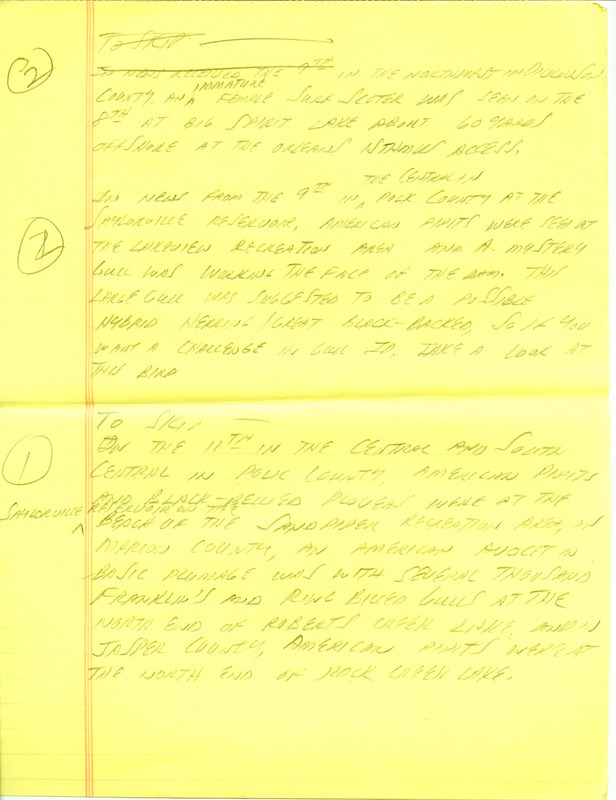 2
To SKIP
IN NEWS RECEIVED THE 9TH IN THE NORTHWEST IN DICKINSON
COUNTY, AN IMMATURE FEMALE SURF SCOTER WAS SEEN ON THE
8TH AT BIG SPIRIT LAKE ABOUT 60 YARDS
OFFSHORE AT THE ORLEANS ISTHMUS ACCESS.
IN NEWS FROM THE 9TH IN THE CENTRAL IN POLK COUNTY AT THE
SAYLORVILLE RESERVOIR, AMERICAN PIPITS WERE SEEN AT
THE LAKEVIEW RECREATION AREA AND A MYSTERY
GULL WAS WORKING THE FACE OF THE DAM. THIS
LARGE GULL WAS SUGGESTED TO BE A POSSIBLE
HYBRID HERRING/GREAT BLACK-BACKED, SO IF YOU
WANT A CHALLENGE IN GULL ID, TAKE A LOOK AT
THIS BIRD
1
TO SKIP
ON THE 11TH IN THE CENTRAL AND SOUTH
CENTRAL IN POLK COUNTY, AMERICAN PIPITS
AND BLACK-BELLIED PLOVERS WERE AT THE
SAYLORVILLE RESERVOIR ON THE
BEACH OF THE SANDPIPER RECREATION AREA, IN
MARION COUNTY, AN AMERICAN AVOCET IN
BASIC PLUMAGE WAS WITH SEVERAL THOUSAND
FRANKLIN'S AND RING BILLED GULLS AT THE
NORTH END OF ROBERTS CREEK LAKE, AND IN
JASPER COUNTY, AMERICAN PIPITS WERE AT
THE NORTH END OF ROCK CREEK LAKE.